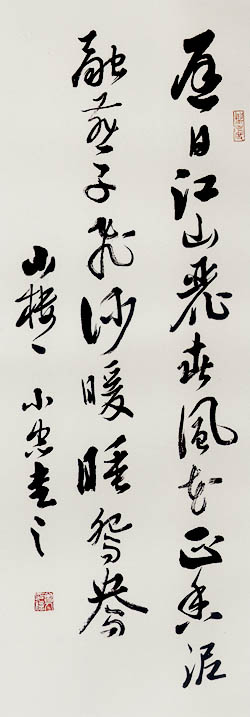 迟日江山麗春風花正香泥
融燕子飛沙暖睡鴛鴦
山楼小忠書之